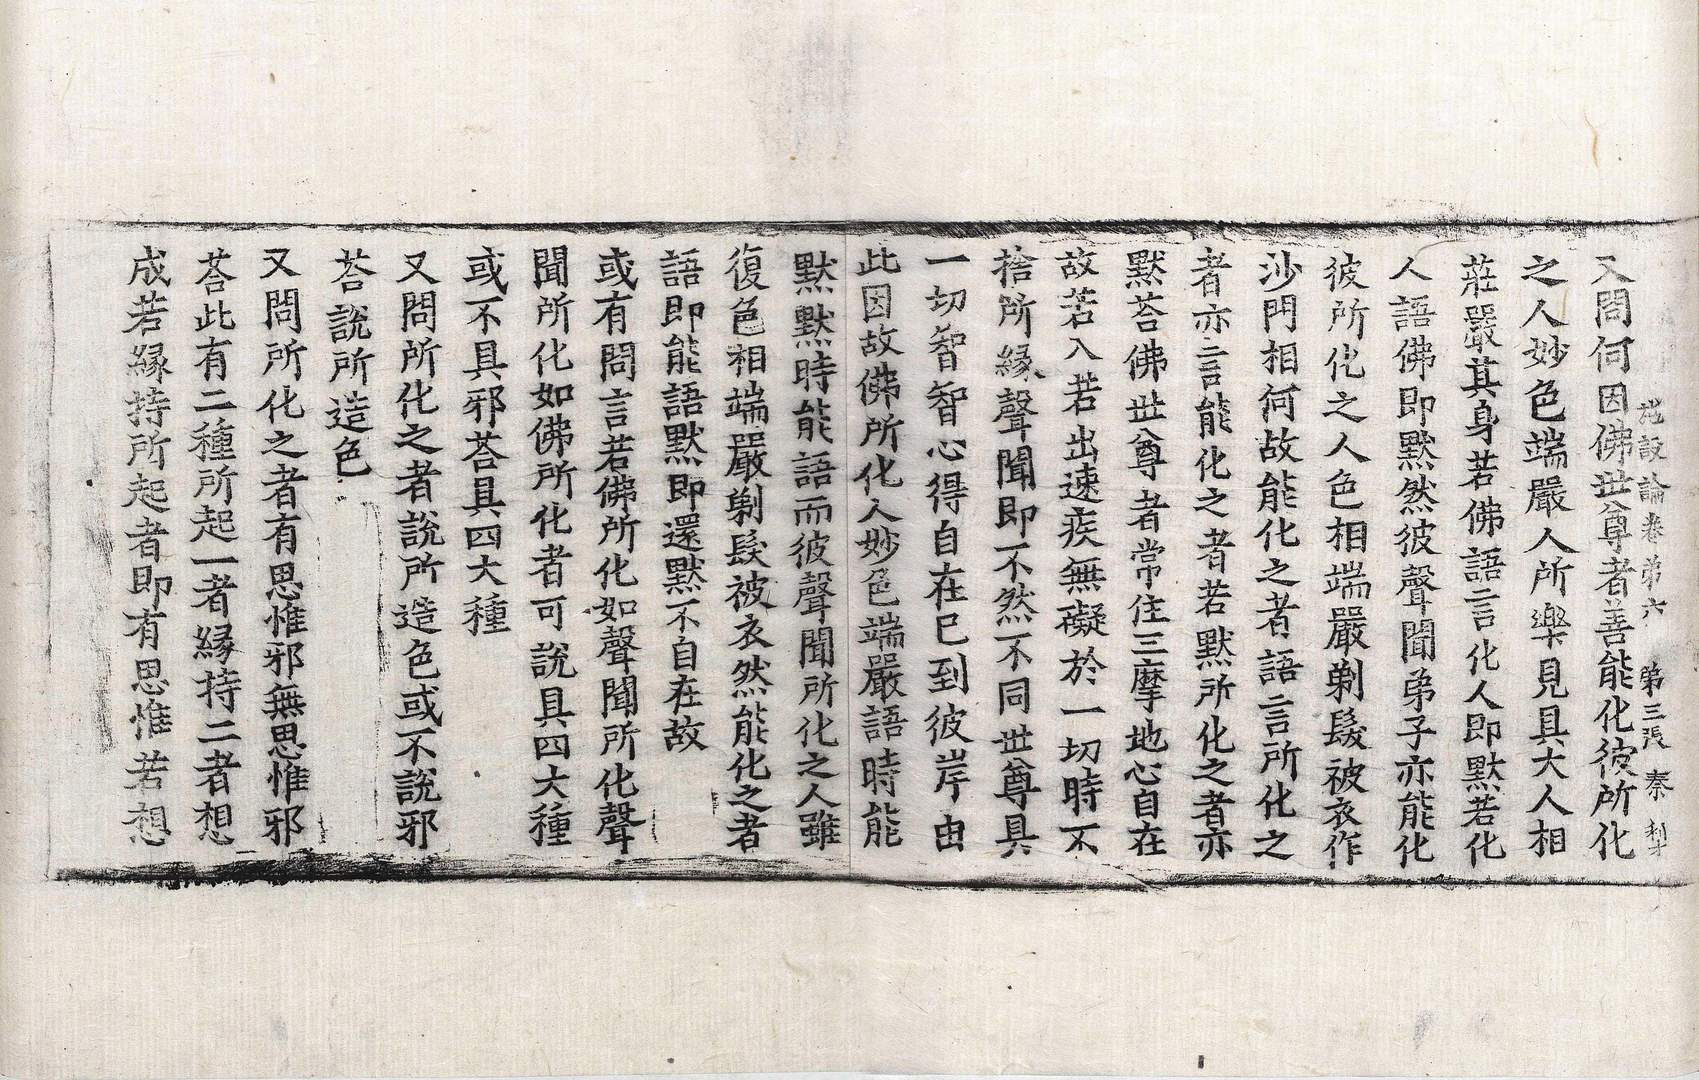 施設論卷第六　第三張　秦
又問何因佛世尊者善能化彼所化
之人妙色端嚴人所樂見具大人相
莊嚴其身若佛語言化人即默若化
人語佛即默然彼聲聞弟子亦能化
彼所化之人色相端嚴剃髮被衣作
沙門相何故能化之者語言所化之
者亦言能化之者若默所化之者亦
默荅佛世尊者常住三摩地心自在
故若入若出速疾無礙於一切時不
捨所緣聲聞即不然不同世尊具
一切智智心得自在已到彼岸由
此因故佛所化人妙色端嚴語時能
默默時能語而彼聲聞所化之人雖
復色相端嚴剃髮被衣然能化之者
語即能語默即還默不自在故
或有問言若佛所化如聲聞所化聲
聞所化如佛所化者可說具四大種
或不具邪荅具四大種
又問所化之者說所造色或不說邪
荅說所造色
又問所化之者有思惟邪無思惟邪
荅此有二種所起一者緣持二者想
成若緣持所起者即有思惟若想